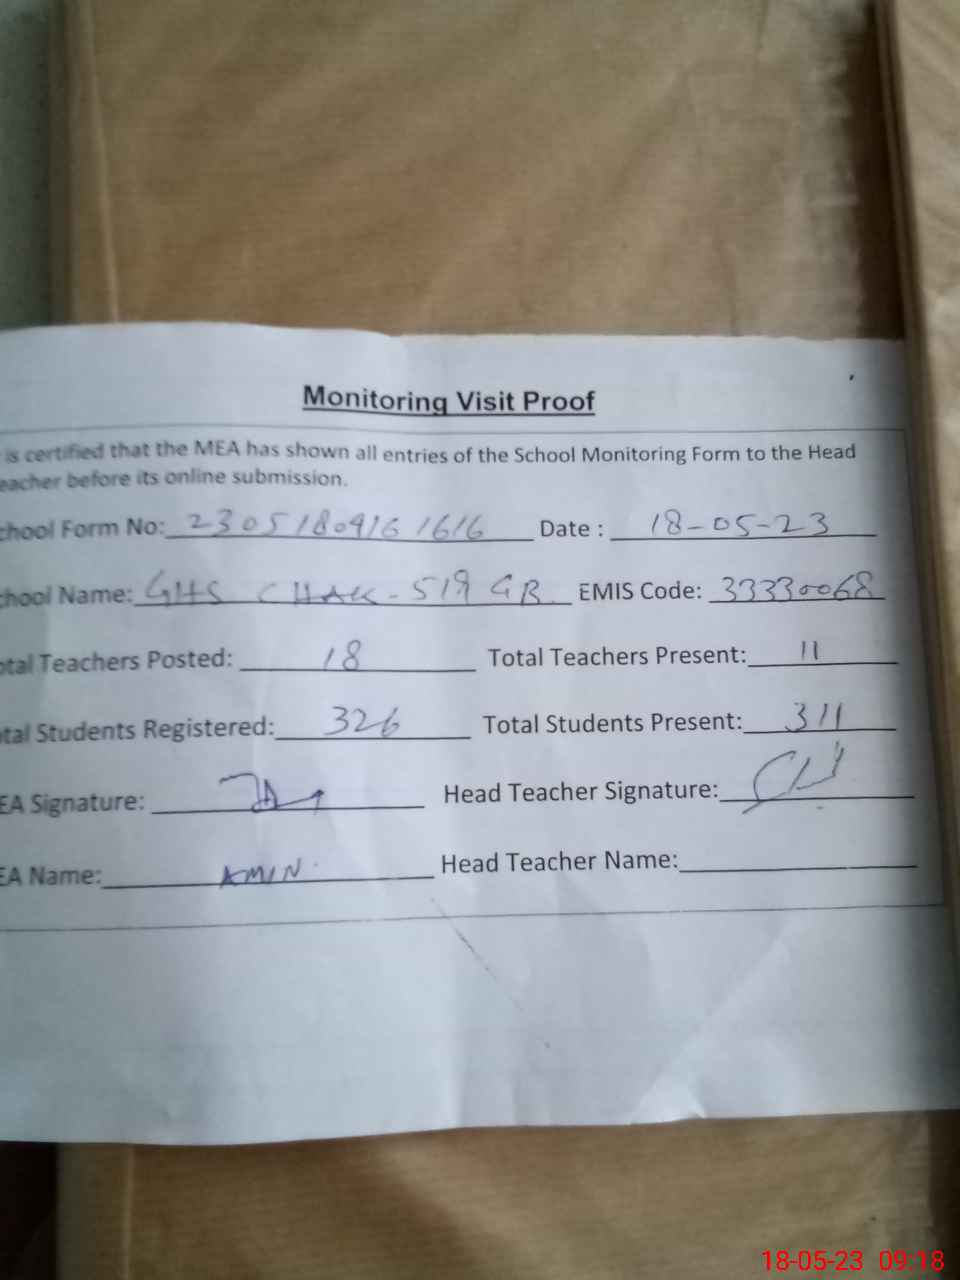 Monitoring Visit Proof
is certified that the MEA has shown all entries of the School Monitoring Form to the Head
eacher before its online submission.
chool Form No: 2305180916 1616 Date : 18-05-23
chool Name: GHS CHAK-519 GB EMIS Code: 33330068
otal Teachers Posted: 18 Total Teachers Present: 11
otal Students Registered: 326 Total Students Present: 311
EA Signature: Head Teacher Signature:
EA Name: AMIN. Head Teacher Name:
18-05-23 09:18